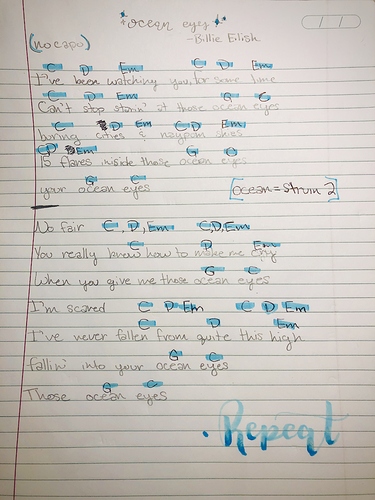 ocean eyes
(no capo)
-Billie Eilish
C D Em C D Em
I've been watching you, for some time
C D Em G C
Can't stop starin' at those ocean eyes
C D Em C D Em
buring cities & naypom skies
C D Em G C
15 flares inside those ocean eyes
G C
your ocean eyes
[ocean = strum 2]
No fair C, D, Em C, D, Em
C D Em
You really know how to make me cry
G C
When you give me those ocean eyes
I'm scared C D Em C D Em
C D Em
I've never fallen from quite this high
G C
fallin' into your ocean eyes
G C
Those ocean eyes
• Repeat